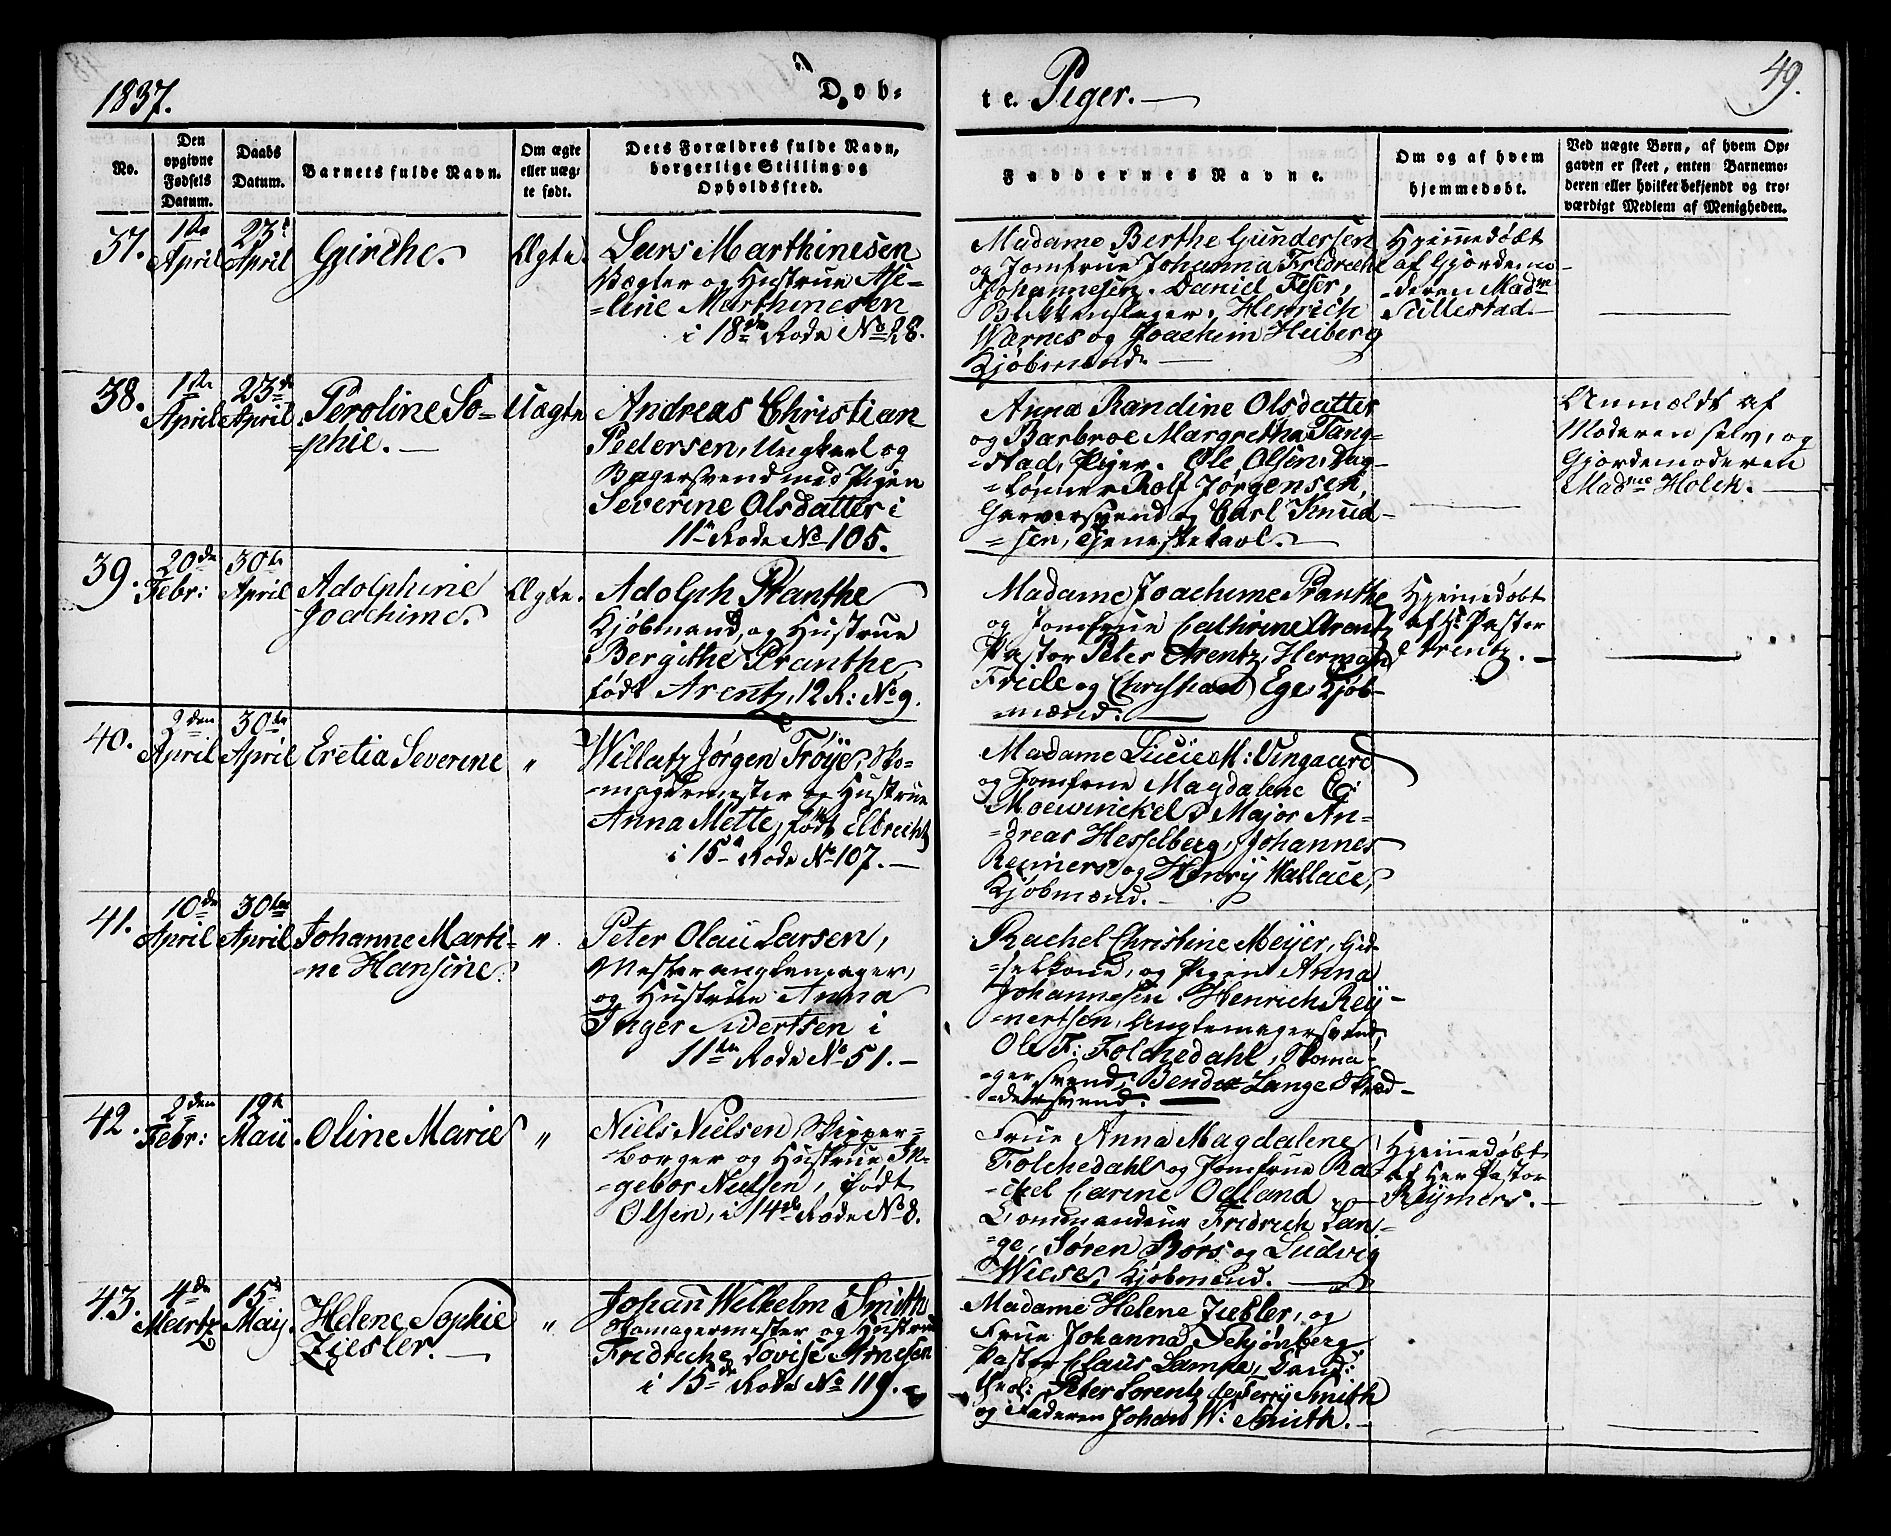 1837.
Døb-
te. Piger.
49.
No.
Den opgivne Fødsels Datum.
Daabs Datum.
Barnets fulde Navn.
Om ægte eller uægte født.
Dets Forældres fulde Navn, borgerlige Stilling og Opholdssted.
Faddernes Navne.
Om og af hvem hjemmedøbt.
Ved uægte Børn, af hvem Opgaven er skeet, enten Barnemoderen eller hvilket bekjendt og troværdigt Medlem af Menigheden.
37.
1ste April
23de April
Girthe.
Ægte.
Lars Marthinesen
Vægter og Hustrue Me-
-line Marthinesen
i 18de Rode No 28.
Madame Berthe Gundersen
og Jomfrue Johanna Fredriche
Johannesen. Daniel Feser,
Blikkenslager, Henrich
Warnes og Joachim Heiberg
Kjøbmænd.
Hjemmedøbt
af Gjordemo-
-deren Madme
Sullestad.
38.
1ste April
23de April
Peroline So-
-phie.
Uægte
Andreas Christian
Pedersen, Ungkarl og
Bagersvend med Pigen
Severine Olsdatter i
11te Rode No 105.
Anna Randine Olsdatter
og Barbroe Margrethe Tang-
-stad, Piger. Ole Olsen, Dag-
-lønner Rolf Jørgensen,
Garversvend og Carl Knud-
-sen, Tjenestekarl.
Anmeldt af
Moderen selv, og
Gjordemoderen
Madme Holck.
39.
20de Febr:
30te April
Adolphine
Joachime.
Ægte.
Adolph Pranthe
Kjøbmand, og Hustrue
Bergithe Pranthe
født Arentz, 12 R: No 9.
Madame Joachime Pranthe
og Jomfrue Cathrine Arentz
Pastor Peter Arentz, Herman
Friele og Christian Ege, Kjøb-
-mænd.
Hjemmedøbt
af Hr Pastor
Arentz.
40.
2den April
30te April
Eretia Severine
"
Willatz Jørgen Trøije, Sko-
-magermester og Hustrue
Anna Mette, født Elbrecht,
i 15de Rode No 107.
Madame Lucie M: Vingaard
og Jomfrue Magdalene C:
Moewinckel, Major An-
-dreas Hesselberg, Johannes
Reimers og Henry Wallace,
Kjøbmænd.
41.
10de April
30te April
Johanne Marti-
-ne Hansine.
"
Peter Olau Larsen,
Mesteruglemager,
og Hustrue Anna
Inger Sivertsen i
11te Rode No 51.
Rachel Christine Meijer, Gid-
-selkone, og Pigen Anna
Johannesen. Henrich Reij-
-nertsen, Uuglemagersvend,
Ole F: Folchedahl, Skoma-
-gersvend, Bendix Lange Skræd-
-dersvend.
42.
2den Febr:
12te Maii
Oline Marie
"
Niels Nielsen, Skipper-
-borger og Hustrue In-
-gebor Nielsen, født
Olsen, i 14de Rode No 8.
Frue Anna Magdalene
Folchedahl og Jomfrue Ra-
-chel Carine Odland
Commandeur Fridrich Lan-
-ge, Søren Børs og Ludvig
Wiese, Kjøbmænd.
Hjemmedøbt
af Her Pastor
Reijmers.
43.
4de Martz
15de Maij.
Helene Sophie
Ziesler.
"
Johan Wilhelm Smith
Skomagermester og Hustrue
Fredricke Lovise Arnesen
i 15de Rode No 119.
Madame Helene Ziesler, og
Frue Johanna Schjønberg
Pastor Claus Lampe, Cand:
theol: Peter Lorentz Jeperrij Smith
og Faderen Johan W: Smith.